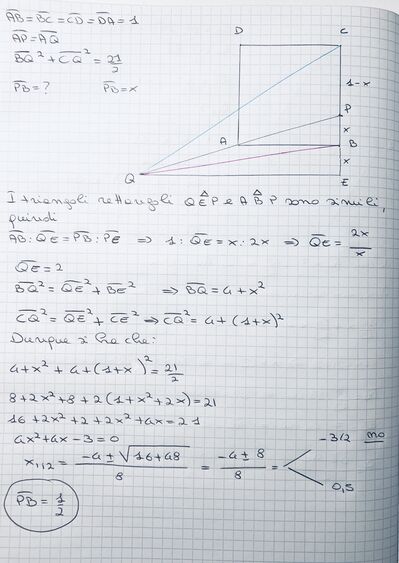 AB = BC = CD = DA = 1
AP = AQ
BQ² + CQ² = 21/2
PB = ? PB = x
D C
1-x
P
x
A B
x
Q E
I triangoli rettangoli QÊP e A B̂ P sono simili,
quindi
AB : QE = PB : PE ⇒ 1 : QE = x : 2x ⇒ QE = 2x/x
QE = 2
BQ² = QE² + BE² ⇒ BQ = 4 + x²
CQ² = QE² + CE² ⇒ CQ² = 4 + (1+x)²
Dunque si ha che:
4 + x² + 4 + (1+x)² = 21/2
8 + 2x² + 8 + 2(1 + x² + 2x) = 21
16 + 2x² + 2 + 2x² + 4x = 21
4x² + 4x - 3 = 0
x1,2 = (-4 ± √(16+48))/8 = (-4 ± 8)/8 = -3/2 no
0,5
PB = 1/2